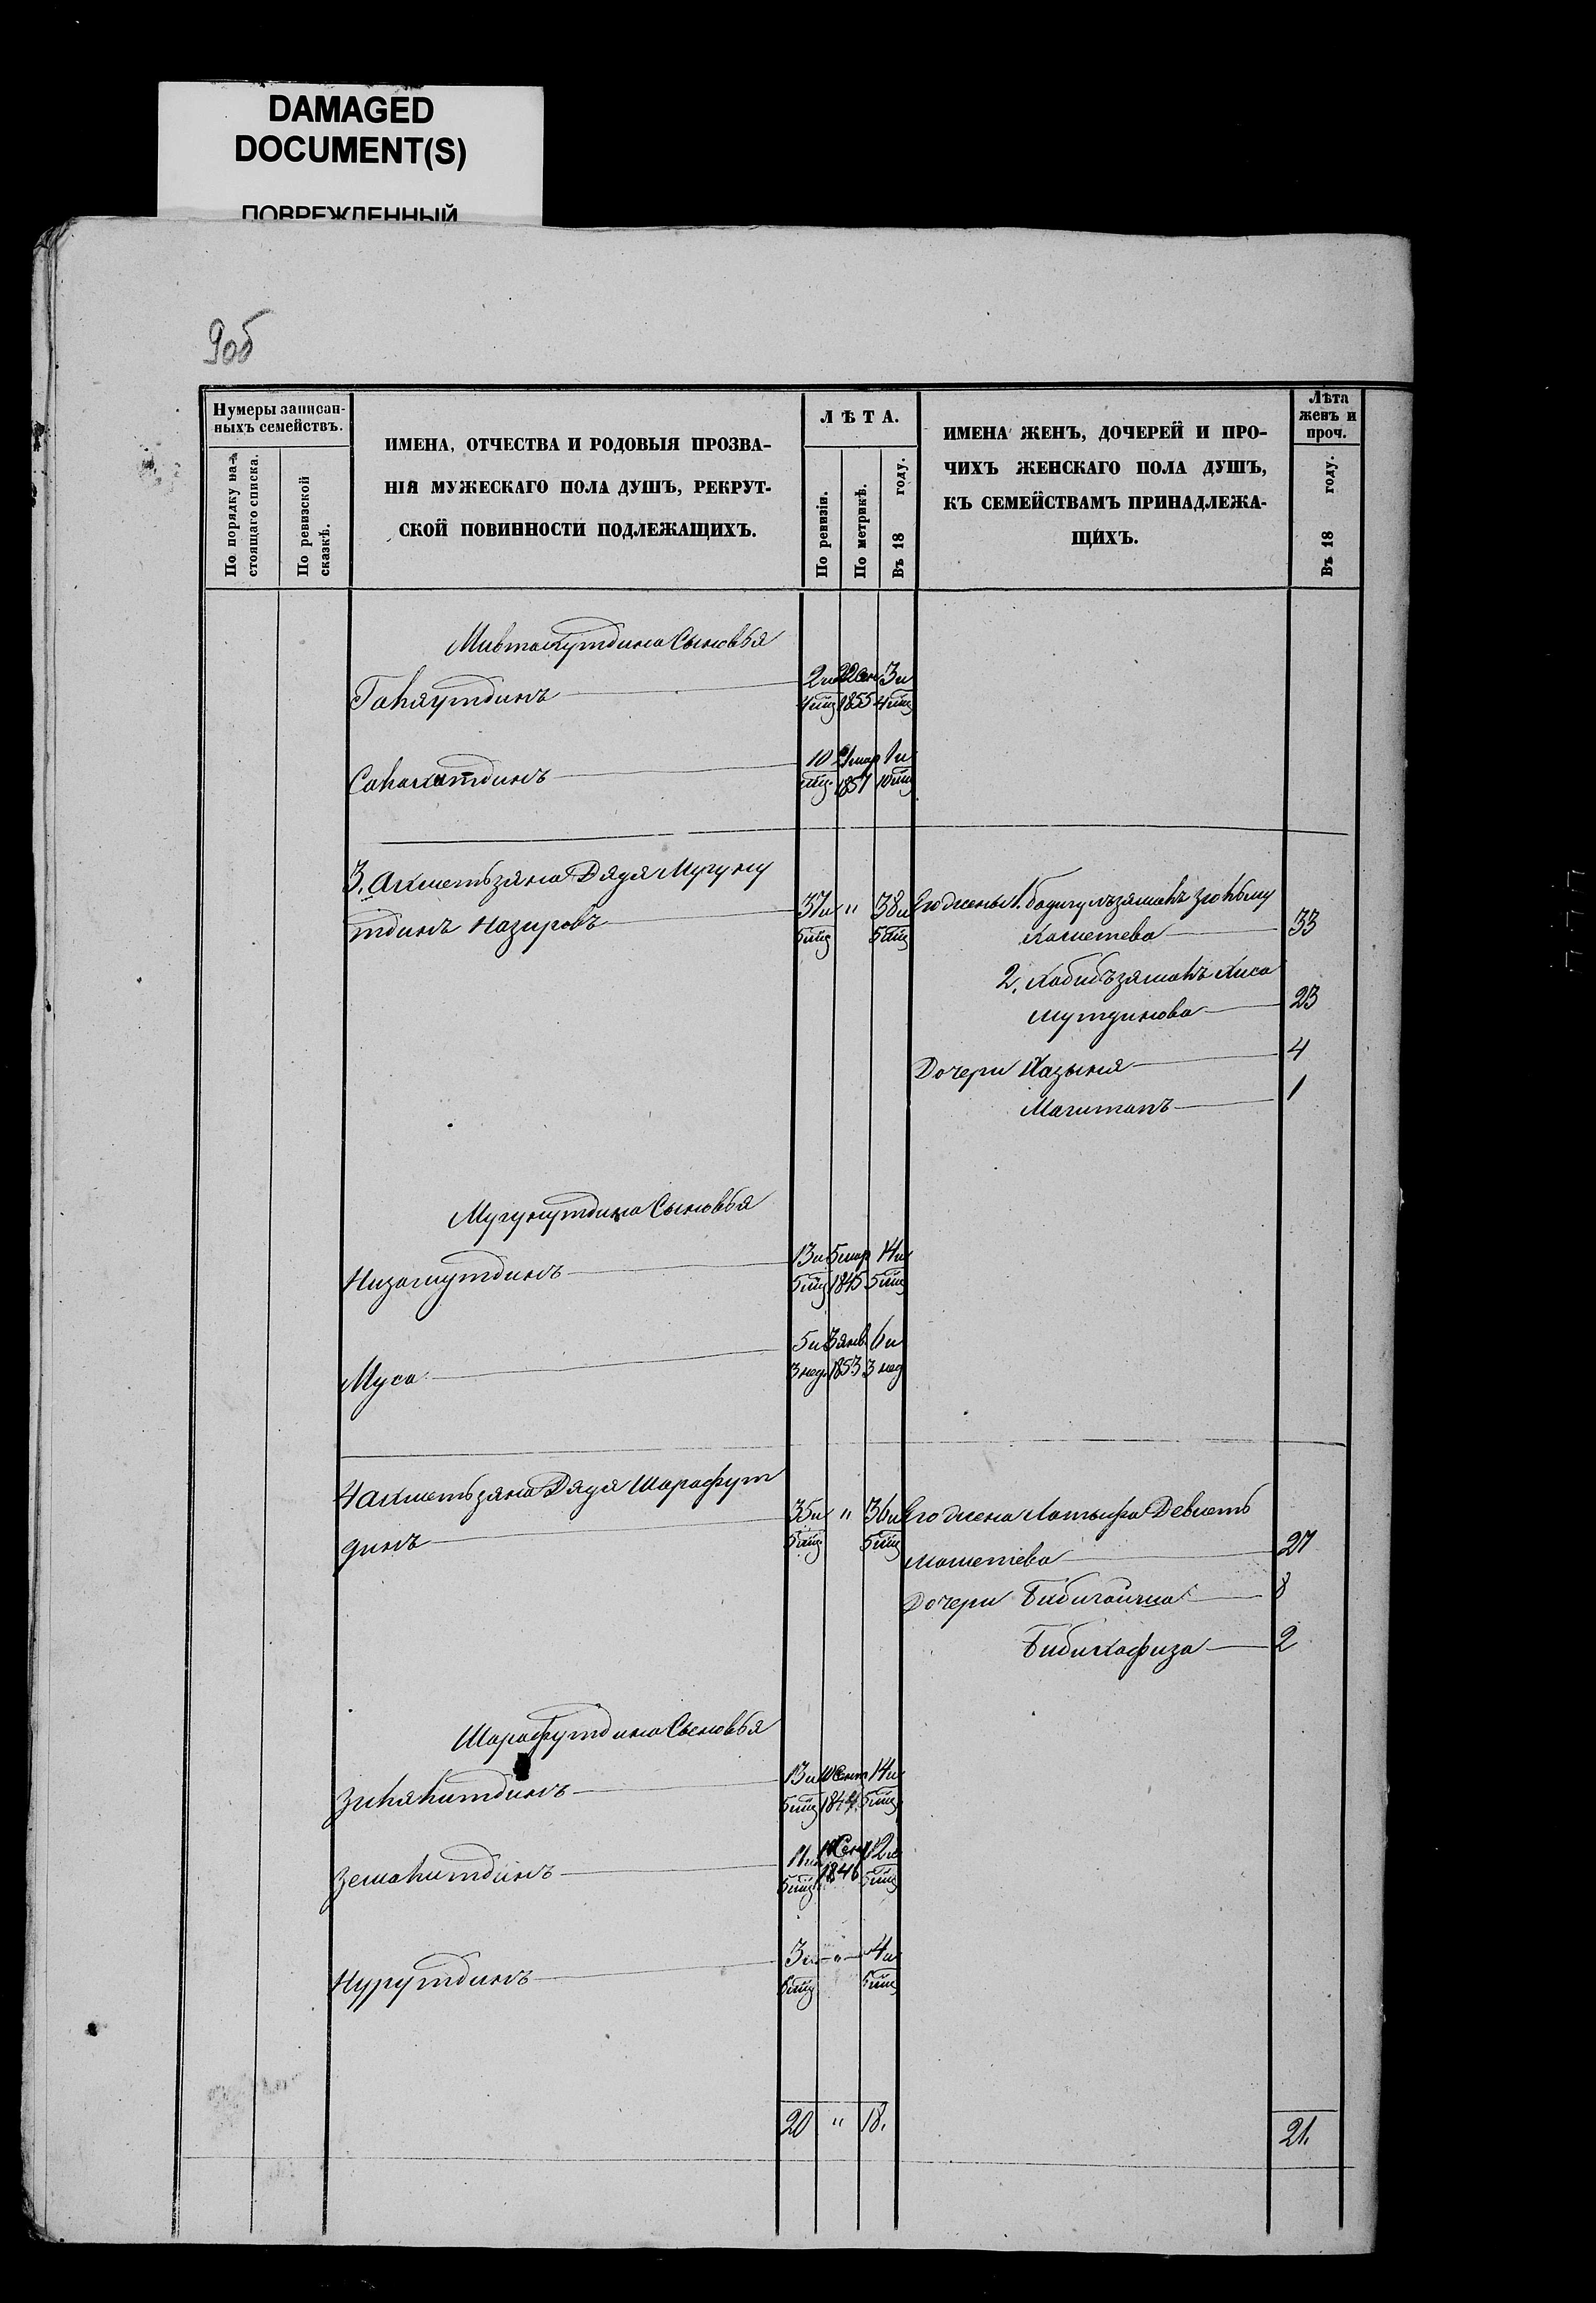 DAMAGED
DOCUMENT(S)
ПОВРЕЖДЕННЫЙ
9об
Нумеры записан-
ныхъ семействъ.
По порядку на-
стоящаго списка.
По ревизской
сказкѣ.
ИМЕНА, ОТЧЕСТВА И РОДОВЫЯ ПРОЗВА-
НІЯ МУЖЕСКАГО ПОЛА ДУШЪ, РЕКРУТ-
СКОЙ ПОВИННОСТИ ПОДЛЕЖАЩИХЪ.
ЛѢТА.
По ревизіи.
По метрикѣ.
Въ 18 году.
ИМЕНА ЖЕНЪ, ДОЧЕРЕЙ И ПРО-
ЧИХЪ ЖЕНСКАГО ПОЛА ДУШЪ,
КЪ СЕМЕЙСТВАМЪ ПРИНАДЛЕЖА-
ЩИХЪ.
Лѣта
женъ и
проч.
Въ 18 году.
Мивтахутдина Сыновья
Гаһяутдинъ 2 и 3 и
4 мц 1855 4 мц
Сахахатдинъ 10 1 и
мц. 1857 10 мц
3. Ахметьзяна Дядя Мугуну
тдинъ Назировъ 37 и " 38 и
5 мц 5 мц
Его жены 1.
хаметева 33
2. Хабибъзямалъ Хиса
мутдинова 23
Дочери Хазыня 4
Магитапъ 1
Мугунутдина Сыновья
Низамутдинъ 13 и 5 мар 14 и
5 мц 1845 5 мц
Муса 5 и 3 янв. 6 и
3 нед. 1853 3 нед
4 Ахметьзяна Дядя Шарафут
динъ 35 и " 36 и
5 мц 5 мц
Его жена Латыфа Девлетъ
маметева 27
Дочери Бибигайша 8
Бибихафиза 2
Шарафутдина Сыновья
Зиһяһитдинъ 13 и 10 Сент 14 и
5 мц 1844. 5 мц
Земаһитдинъ 11 и 12 и
5 мц 1846 5 мц
Нурутдинъ 3 и " 4 и
5 мц 5 мц
20 " 18. 21.